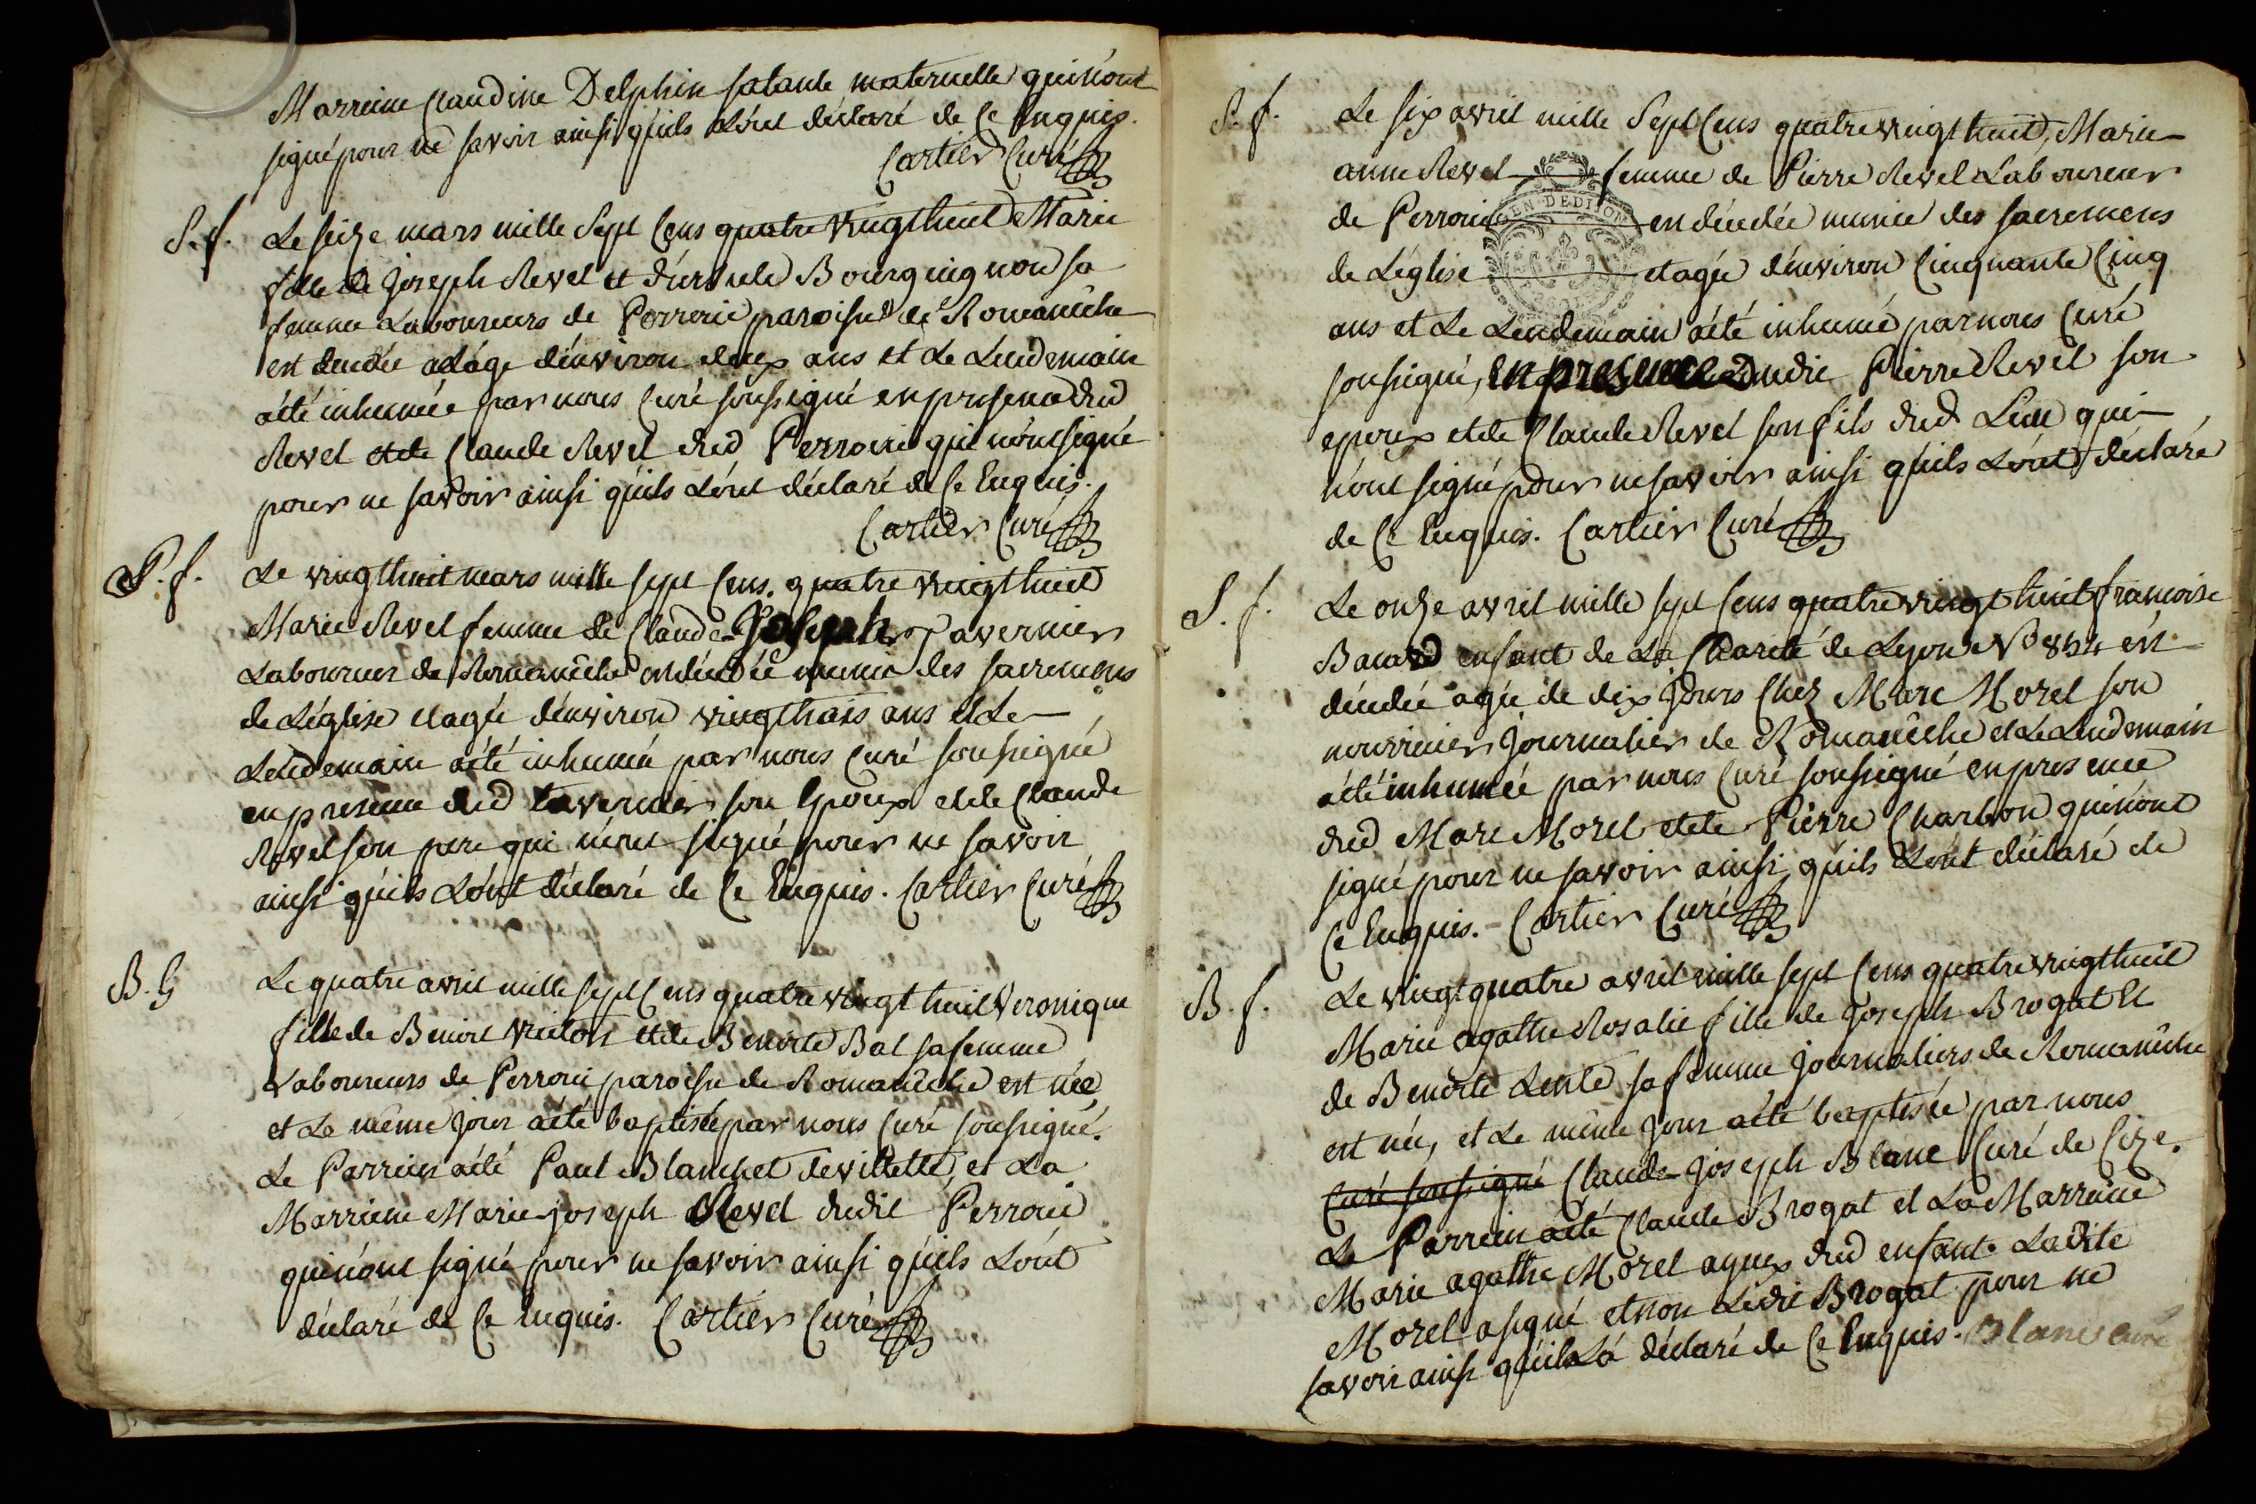 Marreine Claudine Delphin sa tante maternelle qui n'ont
signé pour ne savoir ainsi qu'ils L'ont déclaré de ce Enquis.
Cartier Curé
S. f. Le seize mars mille Sept Cens quatre vingt huit Marie
fille de Joseph Revel et d'ursule Bourguignon sa
femme Laboureurs de Perroui paroisse de Romanêche
est décédée a L'age d'environ deux ans et Le Lendemain
a été inhumée par nous Curé soussigné en presence dud
Revel et de Claude Revel dud Perroui qui n'ont signé
pour ne savoir ainsi qu'ils L'ont déclaré de Ce Enquis.
Cartier Curé
S. f. Le vingt huit mars mille sept Cens quatre vingt huit
Marie Revel femme de Claude Joseph Tavernier
Laboureur de Romanêche est décédée munie des sacremens
de L'église et agée d'environ vingt trois ans et Le
Lendemain a été inhumée par nous Curé soussigné
en presence dud Tavernier son Epoux et de Claude
Revel son pere qui n'ont signé pour ne savoir
ainsi qu'ils L'ont déclaré de Ce Enquis. Cartier Curé
B. G Le quatre avril mille sept Cens quatre vingt huit Veronique
fille de Benoit Vuiton et de Benoite Bal sa femme
Laboureurs de Perroui paroisse de Romanêche est née
et Le même jour a été baptisée par nous Curé soussigné.
Le Parrein a été Paul Blanchet de villette, et La
Marreine Marie joseph Revel dudit Perroui
qui n'ont signé pour ne savoir ainsi qu'ils L'ont
déclaré de Ce Enquis. Cartier Curé
S. f. Le six avril mille Sept Cens quatre vingt huit, Marie
anne Revel femme de Pierre Revel Laboureur
de Perroui est décédée munie des sacremens
de L'église et agée d'environ Cinquante Cinq
ans et Le Lendemain a été inhumée par nous Curé
soussigné, en presence dudit Pierre Revel son
epoux et de Claude Revel son fils dud Lieu qui
n'ont signé pour ne savoir ainsi qu'ils L'ont déclaré
de Ce Enquis. Cartier Curé
S. f. Le onze avril mille sept Cens quatre vingt huit francoise
enfant de La Charité de Lyon N° est
décédée agée de dix jours Chez Marc Morel son
nourricier journalier de Romanêche et Le Lendemain
a été inhumée par nous Curé soussigné en presence
dud Marc Morel et de Pierre Charbon qui n'ont
signé pour ne savoir ainsi qu'ils L'ont déclaré de
Ce Enquis. Cartier Curé
B. f. Le vingt quatre avril mille sept Cens quatre vingt huit
Marie agathe Rosalie fille de Joseph Brogat Et
de Benoite Lente sa femme Journaliers de Romanêche
est née, et Le même jour a été baptisée par nous
Curé soussigné Claude joseph Blanc Curé de Cize.
Le Parrein a été Claude Brogat et La Marreine
Marie agathe Morel ayeux dud enfant. Ladite
Morel a signé et non Ledit Brogat pour ne
savoir ainsi qu'il L'a déclaré de Ce Enquis. Blanc curé